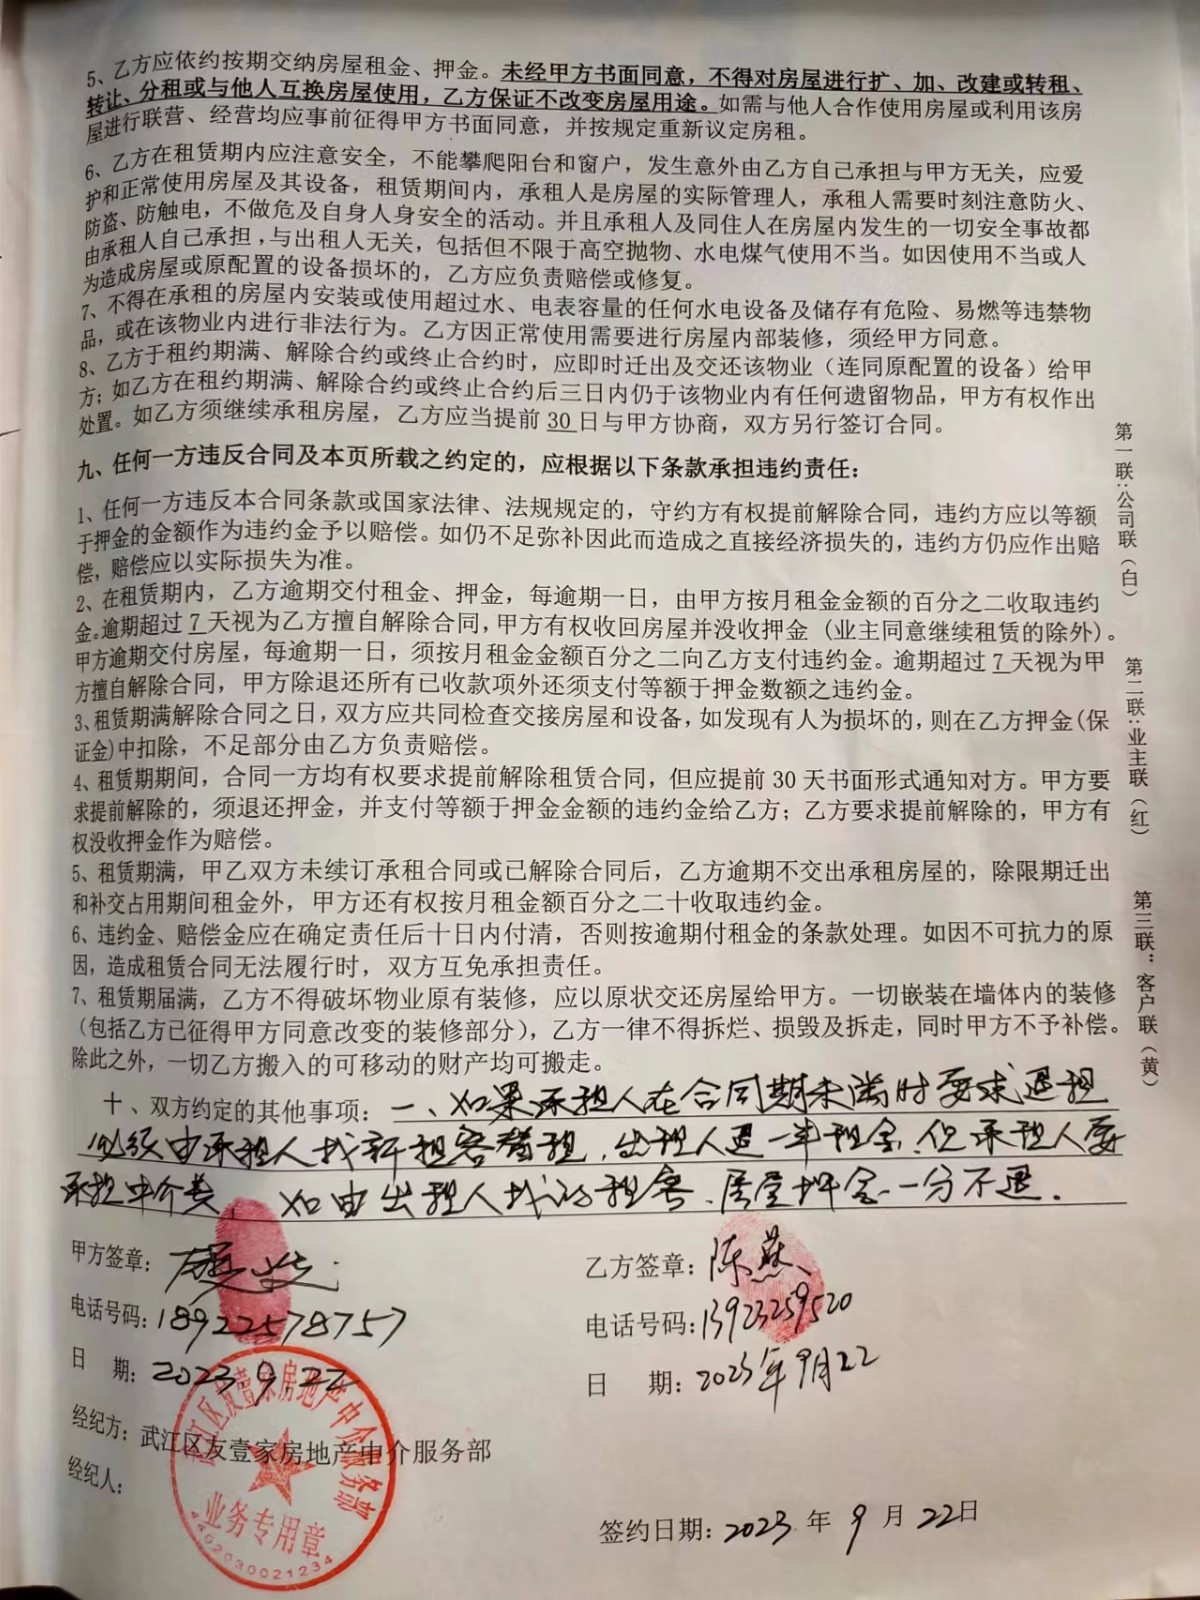 5、乙方应依约按期交纳房屋租金、押金。未经甲方书面同意，不得对房屋进行扩、加、改建或转租、
转让、分租或与他人互换房屋使用，乙方保证不改变房屋用途。如需与他人合作使用房屋或利用该房
屋进行联营、经营均应事前征得甲方书面同意，并按规定重新议定房租。
6、乙方在租赁期内应注意安全，不能攀爬阳台和窗户，发生意外由乙方自己承担与甲方无关，应爱
护和正常使用房屋及其设备，租赁期间内，承租人是房屋的实际管理人，承租人需要时刻注意防火、
防盗、防触电，不做危及自身人身安全的活动。并且承租人及同住人在房屋内发生的一切安全事故都
由承租人自己承担，与出租人无关，包括但不限于高空抛物、水电煤气使用不当。如因使用不当或人
为造成房屋或原配置的设备损坏的，乙方应负责赔偿或修复。
7、不得在承租的房屋内安装或使用超过水、电表容量的任何水电设备及储存有危险、易燃等违禁物
品，或在该物业内进行非法行为。乙方因正常使用需要进行房屋内部装修，须经甲方同意。
8、乙方于租约期满、解除合约或终止合约时，应即时迁出及交还该物业（连同原配置的设备）给甲
方；如乙方在租约期满、解除合约或终止合约后三日内仍于该物业内有任何遗留物品，甲方有权作出
处置。如乙方须继续承租房屋，乙方应当提前 30 日与甲方协商，双方另行签订合同。
九、任何一方违反合同及本页所载之约定的，应根据以下条款承担违约责任：
1、任何一方违反本合同条款或国家法律、法规规定的，守约方有权提前解除合同，违约方应以等额
于押金的金额作为违约金予以赔偿。如仍不足弥补因此而造成之直接经济损失的，违约方仍应作出赔
偿，赔偿应以实际损失为准。
2、在租赁期内，乙方逾期交付租金、押金，每逾期一日，由甲方按月租金金额的百分之二收取违约
金。逾期超过 7 天视为乙方擅自解除合同，甲方有权收回房屋并没收押金 (业主同意继续租赁的除外)。
甲方逾期交付房屋，每逾期一日，须按月租金金额百分之二向乙方支付违约金。逾期超过 7 天视为甲
方擅自解除合同，甲方除退还所有已收款项外还须支付等额于押金数额之违约金。
3、租赁期满解除合同之日，双方应共同检查交接房屋和设备，如发现有人为损坏的，则在乙方押金(保
证金)中扣除，不足部分由乙方负责赔偿。
4、租赁期期间，合同一方均有权要求提前解除租赁合同，但应提前 30 天书面形式通知对方。甲方要
求提前解除的，须退还押金，并支付等额于押金金额的违约金给乙方；乙方要求提前解除的，甲方有
权没收押金作为赔偿。
5、租赁期满，甲乙双方未续订承租合同或已解除合同后，乙方逾期不交出承租房屋的，除限期迁出
和补交占用期间租金外，甲方还有权按月租金额百分之二十收取违约金。
6、违约金、赔偿金应在确定责任后十日内付清，否则按逾期付租金的条款处理。如因不可抗力的原
因，造成租赁合同无法履行时，双方互免承担责任。
7、租赁期届满，乙方不得破坏物业原有装修，应以原状交还房屋给甲方。一切嵌装在墙体内的装修
(包括乙方已征得甲方同意改变的装修部分)，乙方一律不得拆烂、损毁及拆走，同时甲方不予补偿。
除此之外，一切乙方搬入的可移动的财产均可搬走。
十、双方约定的其他事项：一、如果承租人在合同期未满时要求退租
必须由承租人找新租客替租，出租人退一半租金，但承租人要
承担中介费，如由出租人找的租客，房屋押金一分不退.
甲方签章：
电话号码：18922578757
日 期：2023 9 22
经纪方：武江区友壹家房地产中介服务部
经纪人：
乙方签章：陈燕
电话号码：13923259520
日 期：2023年9月22
签约日期：2023 年 9 月 22日
武江区友壹家房地产中介服务部
业务专用章
4402030021234
第一联：公司联（白）
第二联：业主联（红）
第三联：客户联（黄）